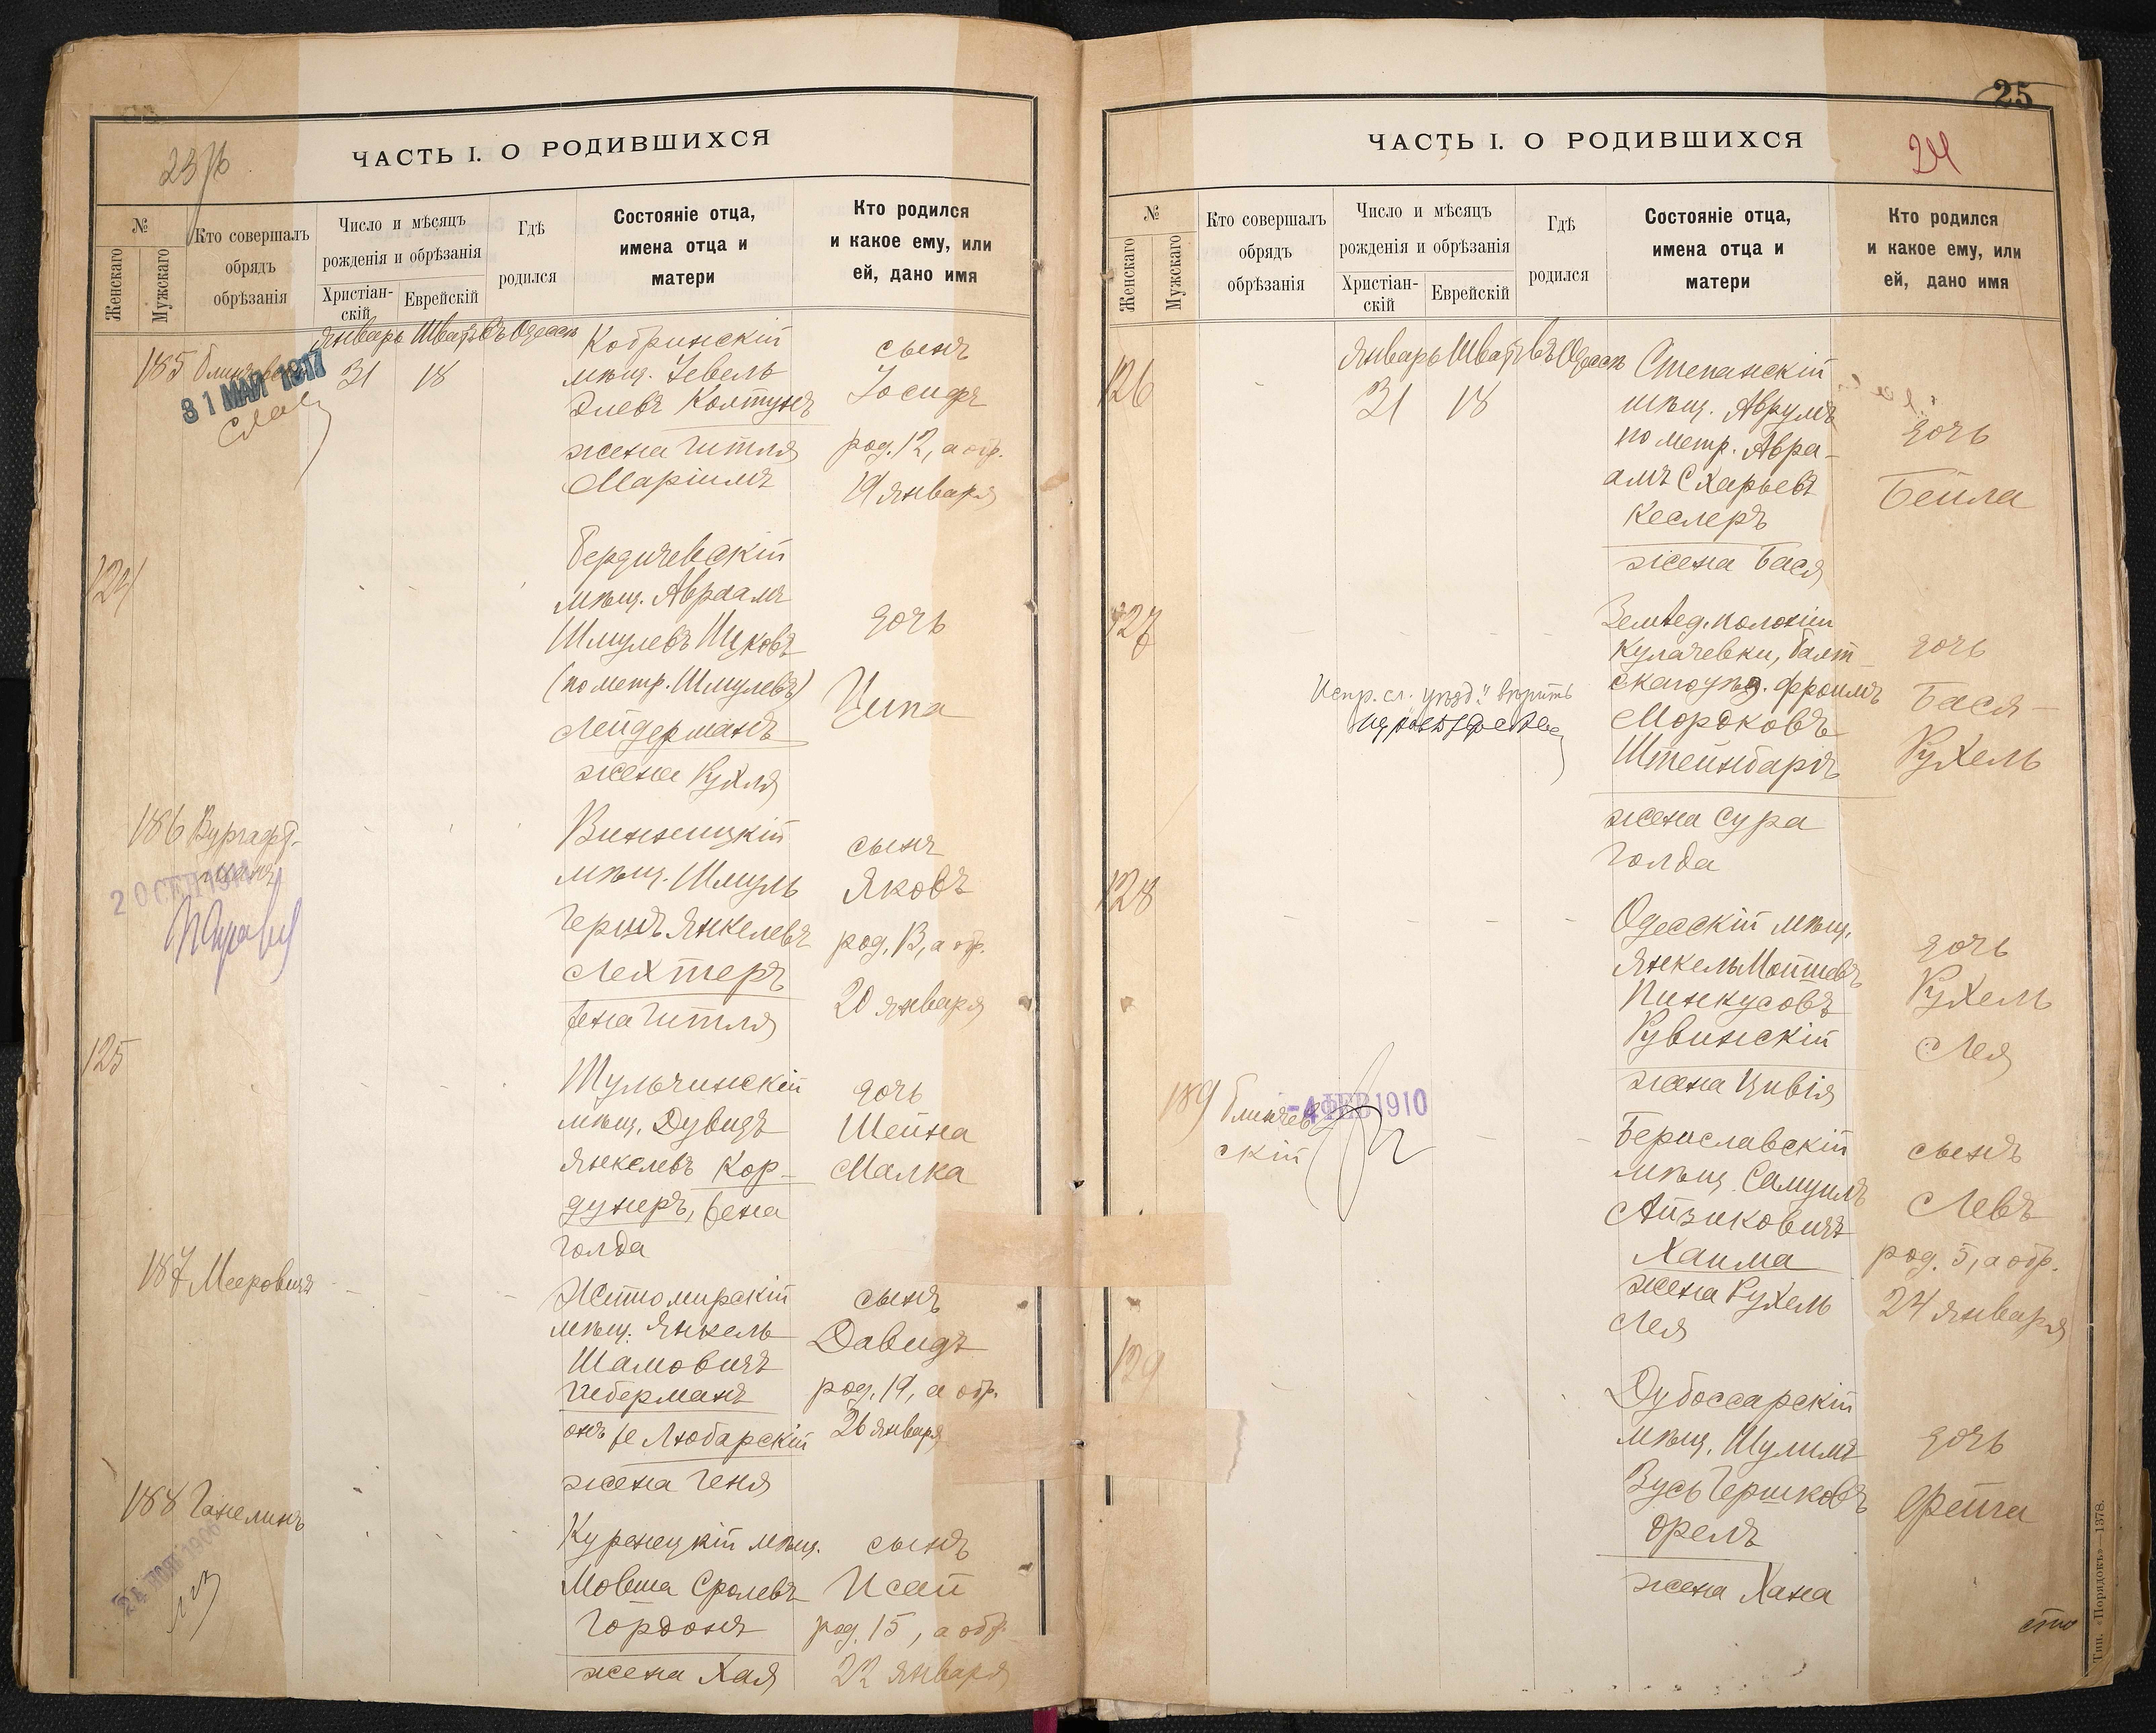 23/б
ЧАСТЬ I. О РОДИВШИХСЯ
№
Женскаго
Мужскаго
Кто совершалъ
обрядъ
обрѣзанія
Число и мѣсяцъ
рожденія и обрѣзанія
Христіан-
скій
Еврейскій
Гдѣ
родился
Состояніе отца,
имена отца и
матери
Кто родился
и какое ему, или
ей, дано имя
Январь Шватъ Въ Одессѣ
185
31 МАЙ 1917
31 18
Кобринскій
мѣщ. Зевель
Элевъ Колтунъ
жена Гитля
Маріимъ
сынъ
Іосифъ
род. 12, а обр.
19 января
124
Бердичевскій
мѣщ. Авраамъ
Шмулевъ Ицковъ
(по метр. Шмулевъ)
Лейдерманъ
жена Рухля
дочь
Ципа
186 Вургафт-
манъ
20 СЕН
Винницкій
мѣщ. Шмуль
Гершъ Янкелевъ
Лехтеръ
жена Гитля
сынъ
Яковъ
род. 13, а обр.
20 января
125
Тульчинскій
мѣщ. Дувидъ
Янкелевъ Кор-
дунеръ, жена
Голда
дочь
Шейна
Малка
187 Мееровичъ
Житомирскій
мѣщ. Янкель
Шамовичъ
Гиберманъ
онъ же Любарскій
жена Геня
сынъ
Давидъ
род. 19, а обр.
26 января
188 Ганелинъ
24 НОЯ 1906
Куренецкій мѣщ.
Мовша Сролевъ
Гордонъ
жена Хая
сынъ
Исай
род. 15, а обр.
22 января
25
24
ЧАСТЬ I. О РОДИВШИХСЯ
№
Женскаго
Мужскаго
Кто совершалъ
обрядъ
обрѣзанія
Число и мѣсяцъ
рожденія и обрѣзанія
Христіан-
скій
Еврейскій
Гдѣ
родился
Состояніе отца,
имена отца и
матери
Кто родился
и какое ему, или
ей, дано имя
Январь Шватъ Въ Одессѣ
126
31 18
Степанскій
мѣщ. Аврумъ
по метр. Авра-
амъ Схарьевъ
Кеслеръ
жена Бася
дочь
Бейла
127
Испр. сл. "уѣзд." вѣрить
Землед. колоніи
Кулачевки, Балт-
скаго уѣзд. Фроимъ
Мордковъ
Штейнбаргъ
жена Сура
Голда
дочь
Бася-
Рухель
128
Одесскій мѣщ.
Янкель Мошковъ
Пинкусовъ
Рувинскій
жена Цивія
дочь
Рухель
Лея
189 Блинчев-
скій
-4 ФЕВ 1910
Бериславскій
мѣщ. Самуилъ
Айзиковичъ
Хаима
жена Рухель
Лея
сынъ
Левъ
род. 5, а обр.
24 января
129
Дубоссарскій
мѣщ. Шулимъ
Зусь Гершковъ
Орелъ
жена Хана
дочь
Фейга
Тип. «Порядокъ»—1378.